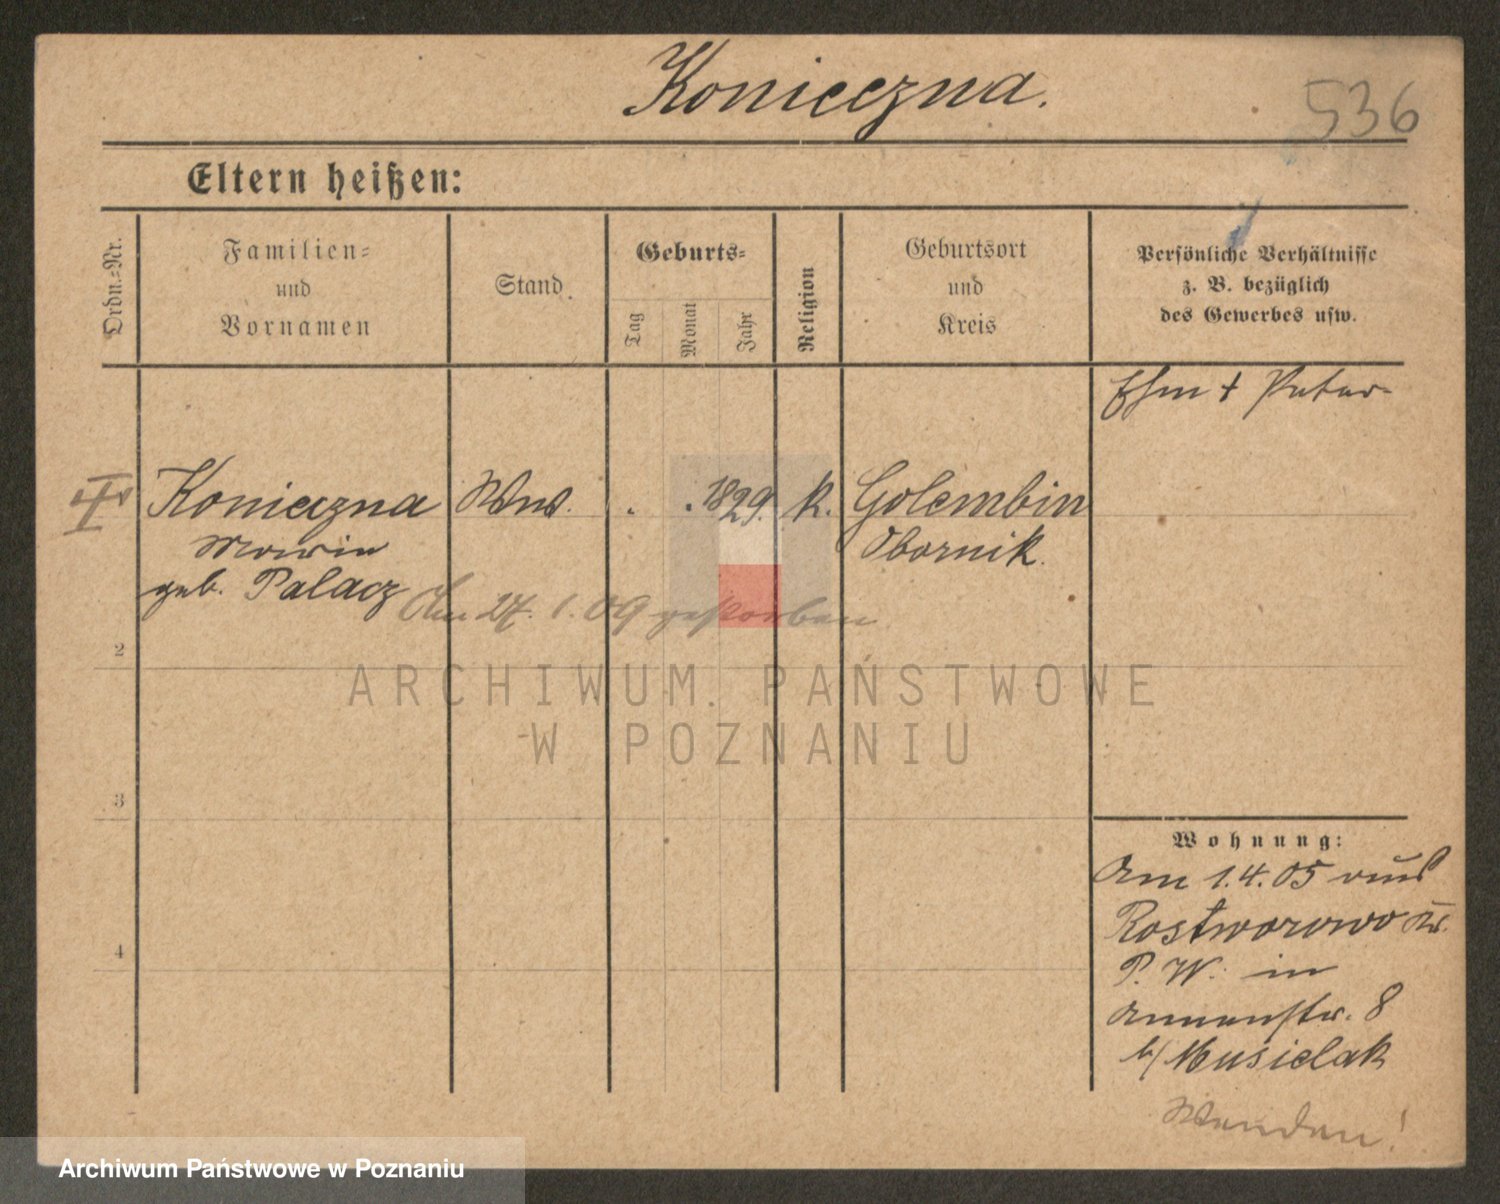 Konieczna.
536
Eltern heißen:
Ordn.=Nr.
Familien=
und
Vornamen
Stand.
Geburts=
Tag
Monat
Jahr
Religion
Geburtsort
und
Kreis
Persönliche Verhältnisse
z. B. bezüglich
des Gewerbes usw.
Ehm † Peter
Konieczna Wwe. . . 1829. k. Golembin
Marie Obornik.
geb. Palacz Am 27. 1. 09 gestorben
2
ARCHIWUM PAŃSTWOWE
W POZNANIU
3
Wohnung:
Am 1.4.05 aus
Rostworowo Kr.
P. W. in
Annenstr. 8
b/ Musielak
4
Wenden!
Archiwum Państwowe w Poznaniu